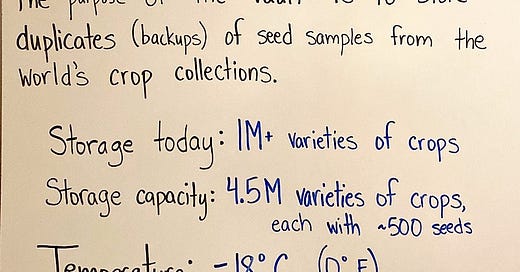 The purpose of the vault is to store
duplicates (backups) of seed samples from the
world's crop collections.
Storage today: 1M+ varieties of crops
Storage capacity: 4.5M varieties of crops,
each with ~500 seeds
Temperature: -18° C (0° F)